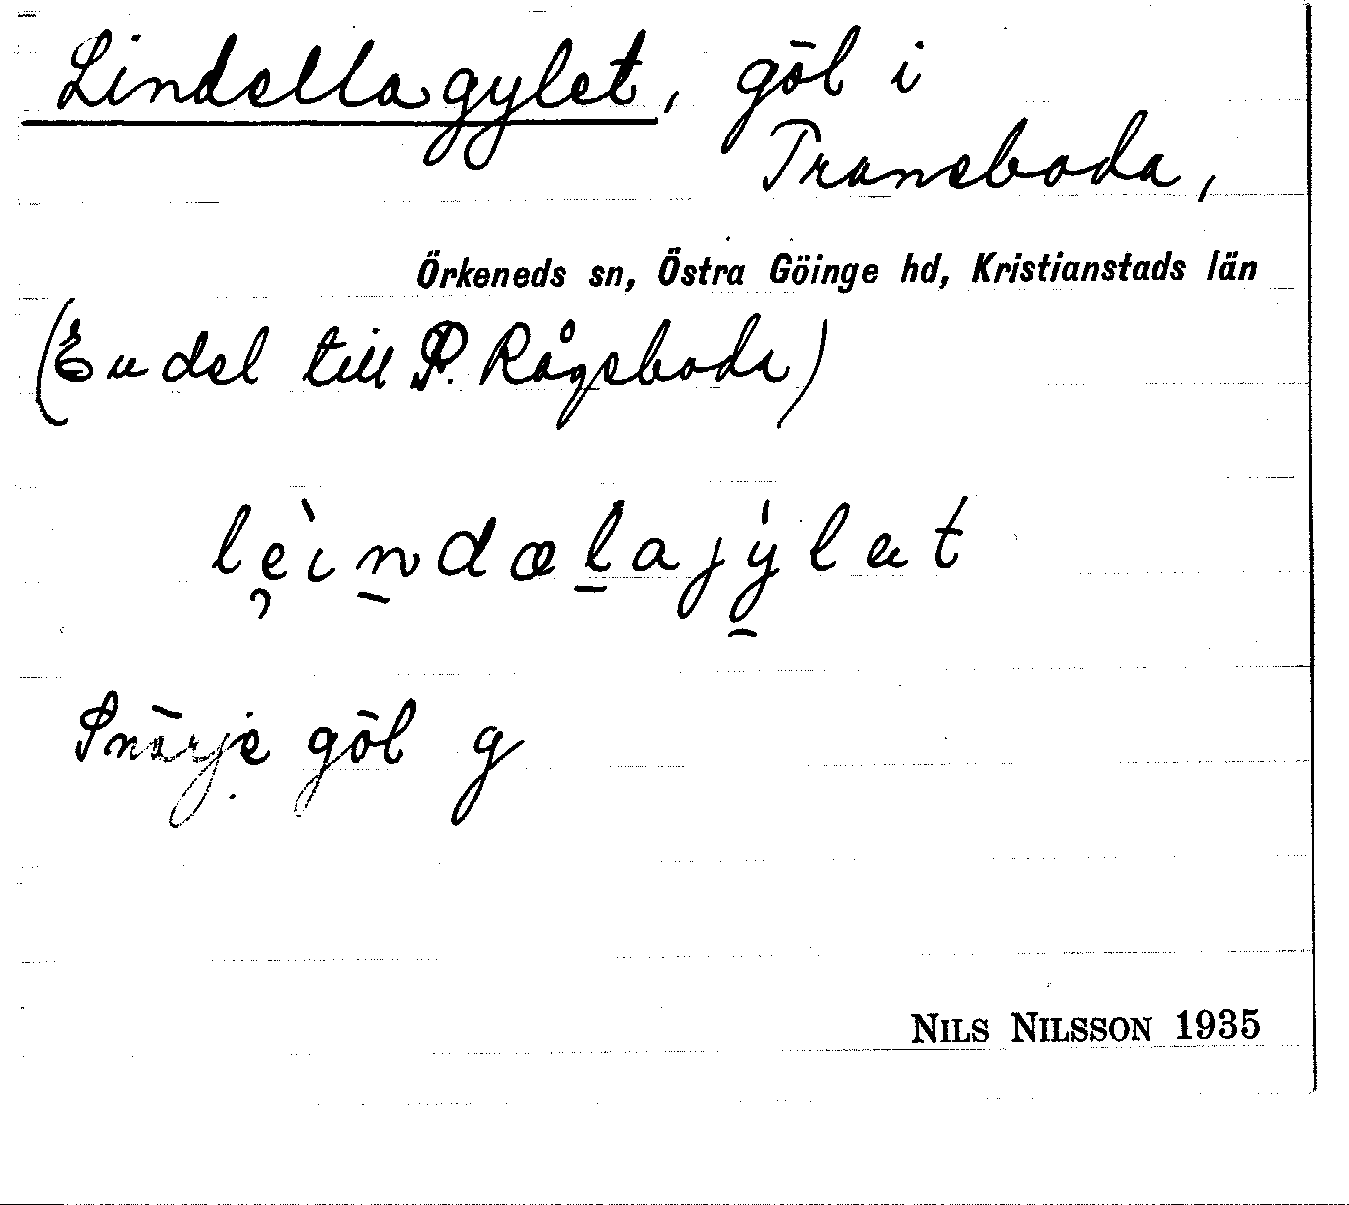 Lindellagylet, göl i
Transboda,
Örkeneds sn, Östra Göinge hd, Kristianstads län
(En del till P. Rågeboda)
lèindælajýlæt
göl g
NILS NILSSON 1935